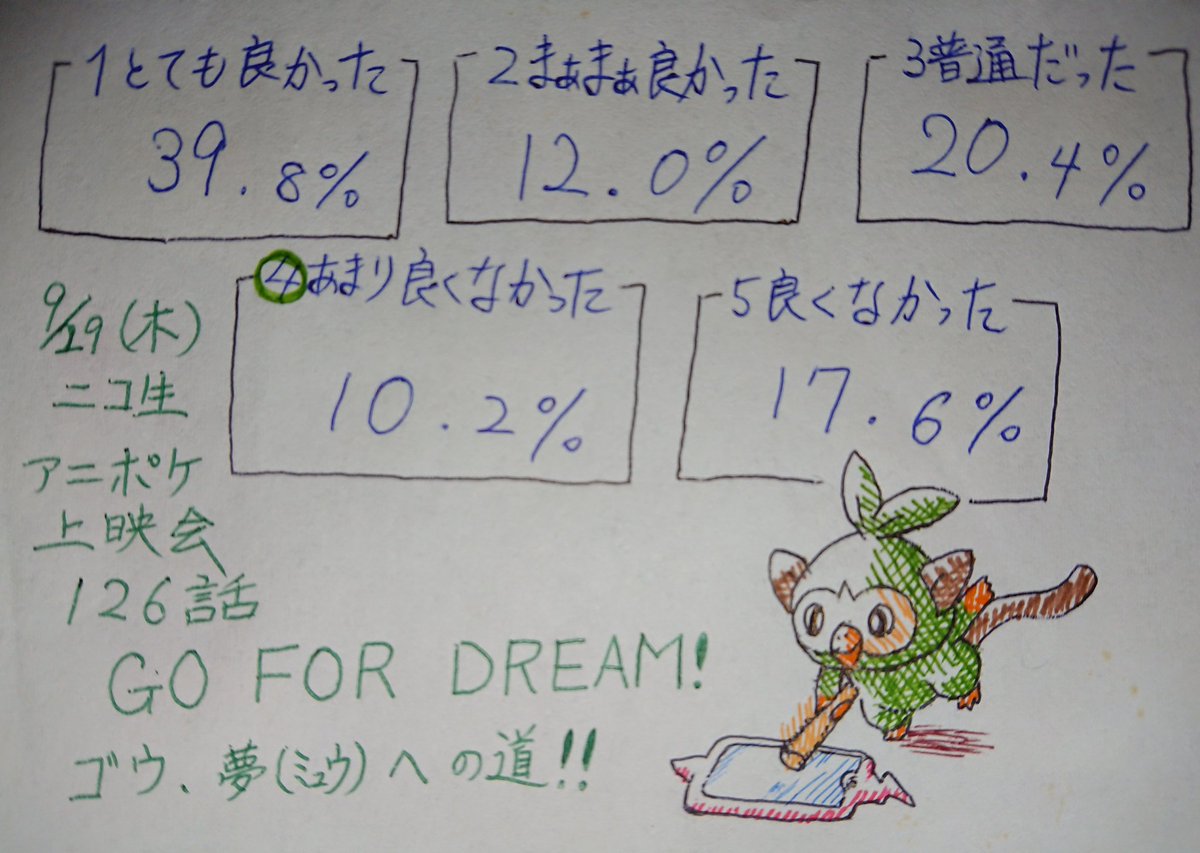 1とても良かった
39.8%
2まぁまぁ良かった
12.0%
3普通だった
20.4%
4あまり良くなかった
10.2%
5良くなかった
17.6%
9/19(木)
ニコ生
アニポケ
上映会
126話
GO FOR DREAM!
ゴウ、夢(ミュウ)への道!!